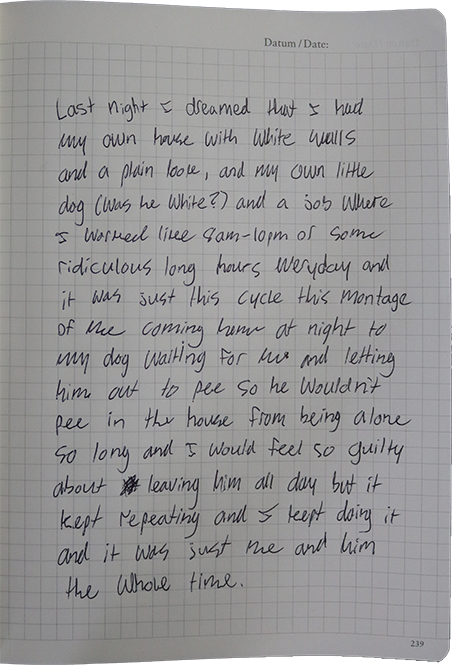 Datum / Date:
Last night I dreamed that I had
my own house with white walls
and a plain look, and my own little
dog (was he white?) and a job where
I worked like 8am-10pm or some
ridiculous long hours everyday and
it was just this cycle this montage
of me coming home at night to
my dog waiting for me and letting
him out to pee so he wouldn't
pee in the house from being alone
so long and I would feel so guilty
about leaving him all day but it
kept repeating and I kept doing it
and it was just me and him
the whole time.
239